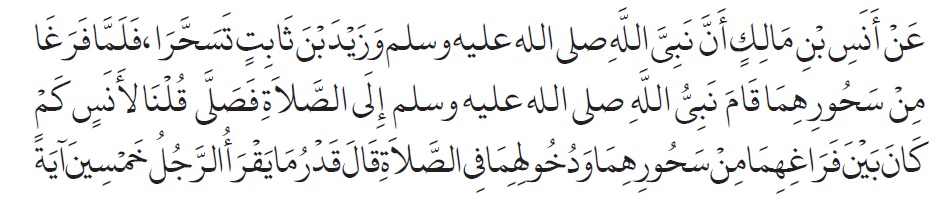 عَنْ أَنَسِ بْنِ مَالِكٍ أَنَّ نَبِيَّ اللَّهِ صلى الله عليه وسلم وَزَيْدَ بْنَ ثَابِتٍ تَسَحَّرَا، فَلَمَّا فَرَغَا
مِنْ سَحُورِهِمَا قَامَ نَبِيُّ اللَّهِ صلى الله عليه وسلم إِلَى الصَّلاَةِ فَصَلَّى قُلْنَا لأَنَسٍ كَمْ
كَانَ بَيْنَ فَرَاغِهِمَا مِنْ سَحُورِهِمَا وَدُخُولِهِمَا فِي الصَّلاَةِ قَالَ قَدْرُ مَا يَقْرَأُ الرَّجُلُ خَمْسِينَ آيَةً